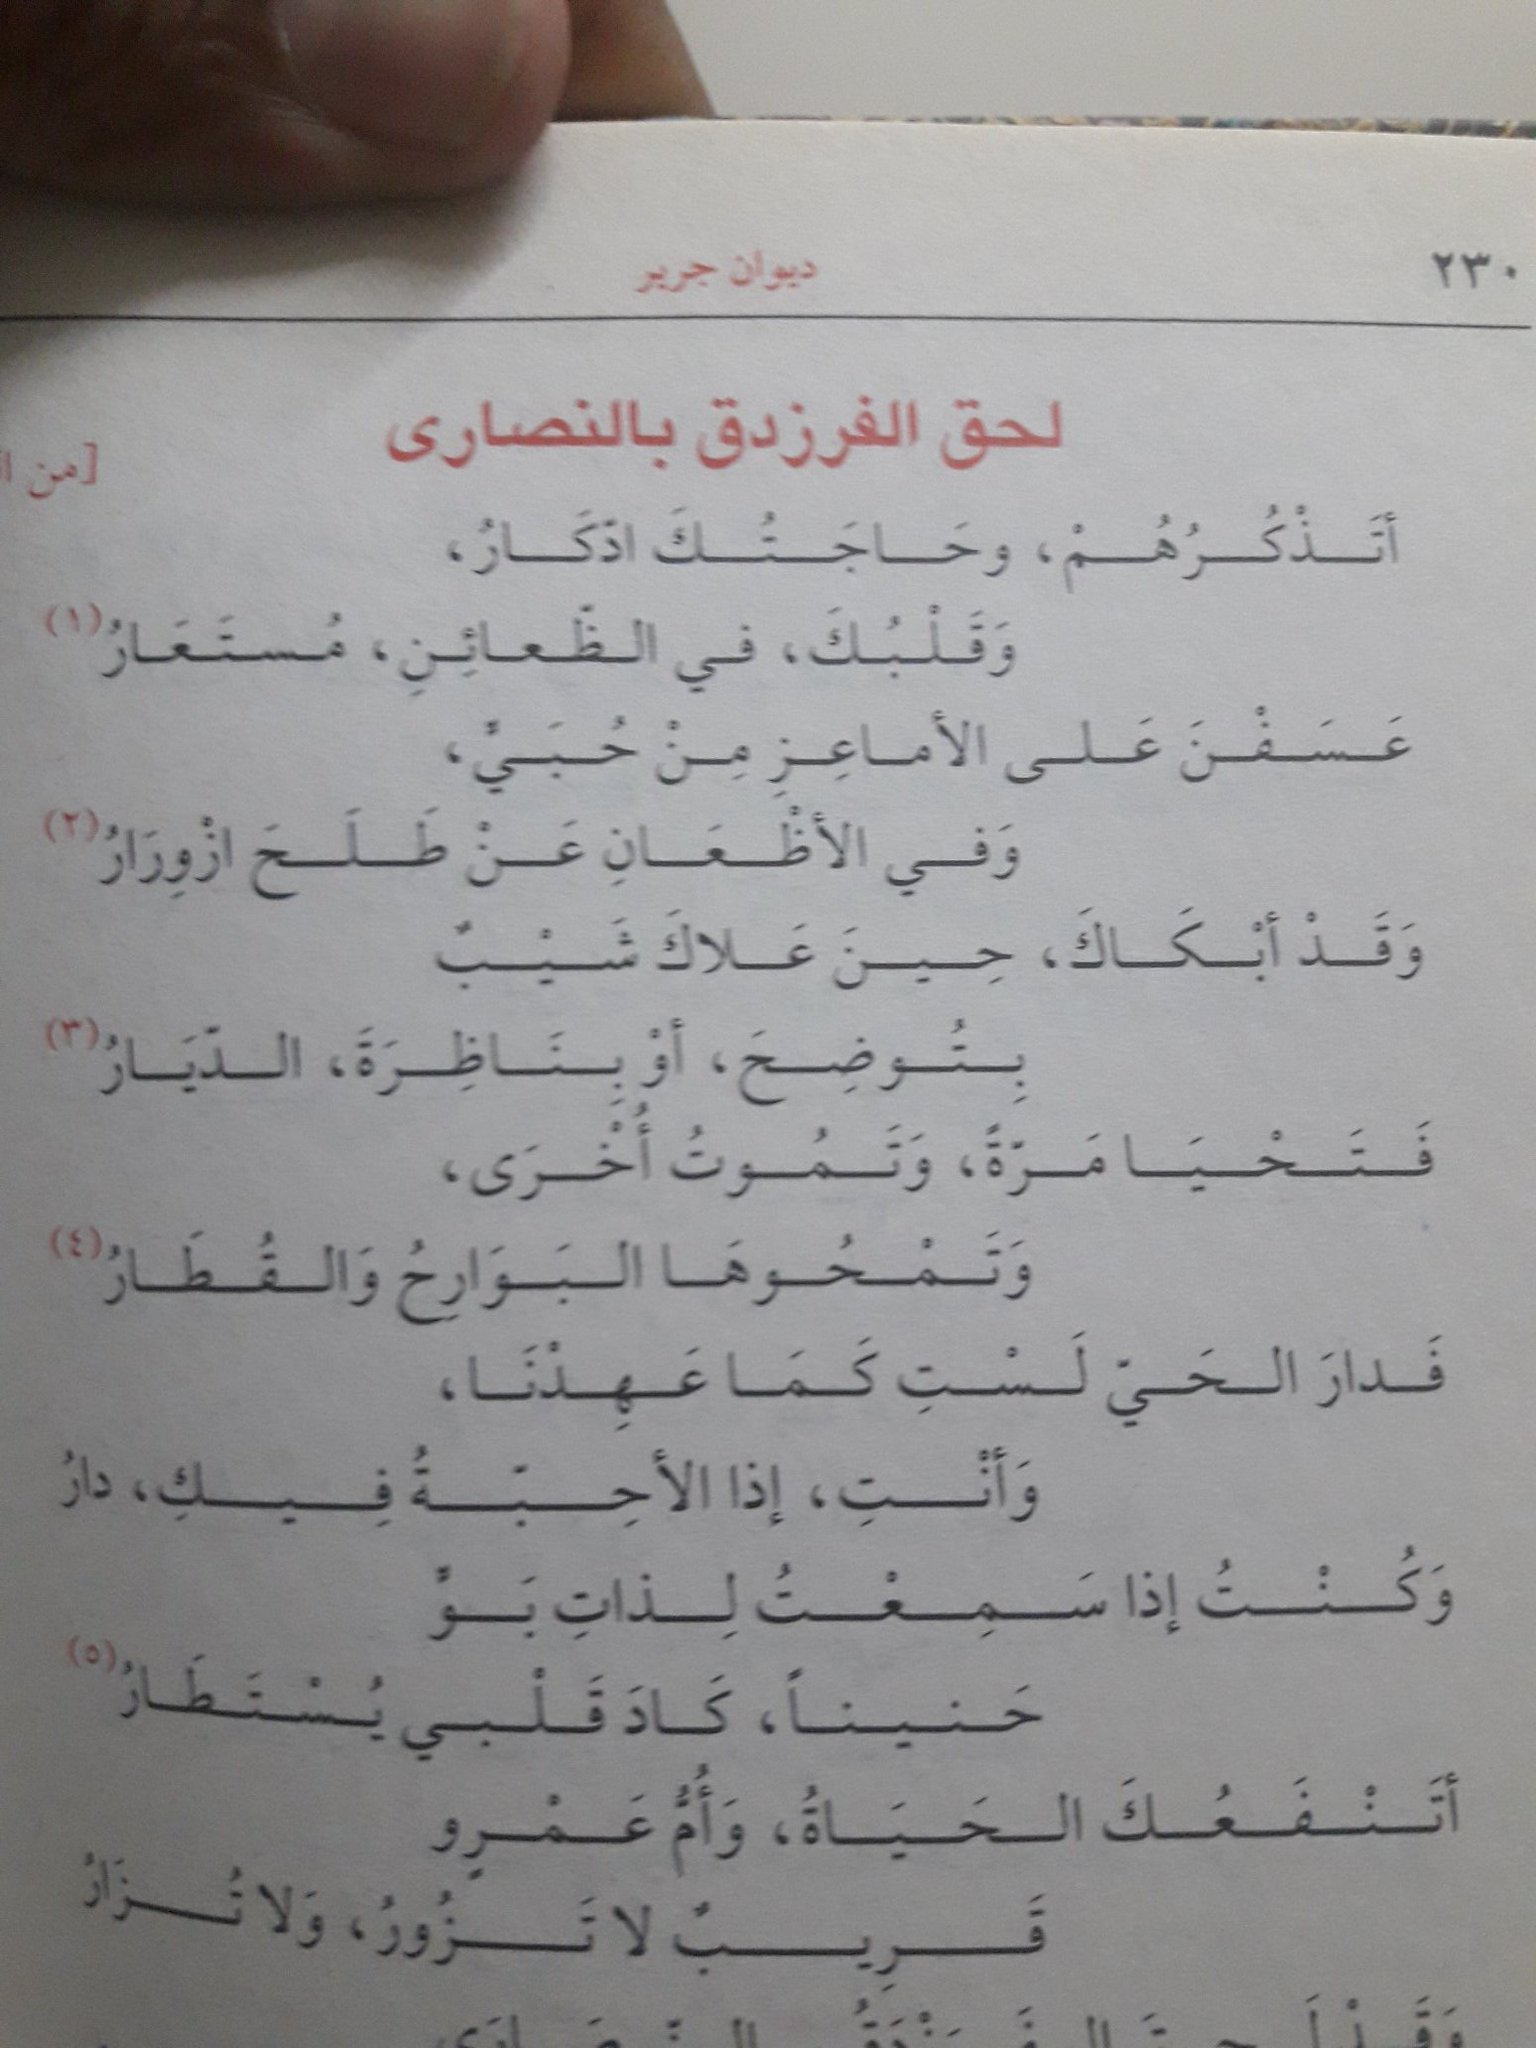 ٢٣٠ ديوان جرير
لحق الفرزدق بالنصارى
[من
أتَذْكُرُهُمْ، وحَاجَتُكَ ادّكَارُ،
وَقَلْبُكَ، في الظّعائِنِ، مُستَعَارُ(١)
عَسَفْنَ عَلى الأماعِزِ مِنْ حُبَيٍّ،
وَفي الأظْعَانِ عَنْ طَلَحَ ازْوِرَارُ(٢)
وَقَدْ أبْكَاكَ، حِينَ عَلاكَ شَيْبٌ
بِتُوضِحَ، أوْ بِنَاظِرَةَ، الدّيَارُ(٣)
فَتَحْيَا مَرّةً، وَتَمُوتُ أُخْرَى،
وَتَمْحُوهَا البَوَارِحُ وَالقُطَارُ(٤)
فَدارَ الحَيّ لَسْتِ كَمَا عَهِدْنَا،
وَأنْتِ، إذا الأحِبّةُ فِيكِ، دارُ
وَكُنْتُ إذا سَمِعْتُ لِذاتِ بَوٍّ
حَنيناً، كَادَ قَلْبي يُسْتَطَارُ(٥)
أتَنْفَعُكَ الحَيَاةُ، وَأُمُّ عَمْرٍو
قَرِيبٌ لا تَزُورُ، وَلا تُزَارُ